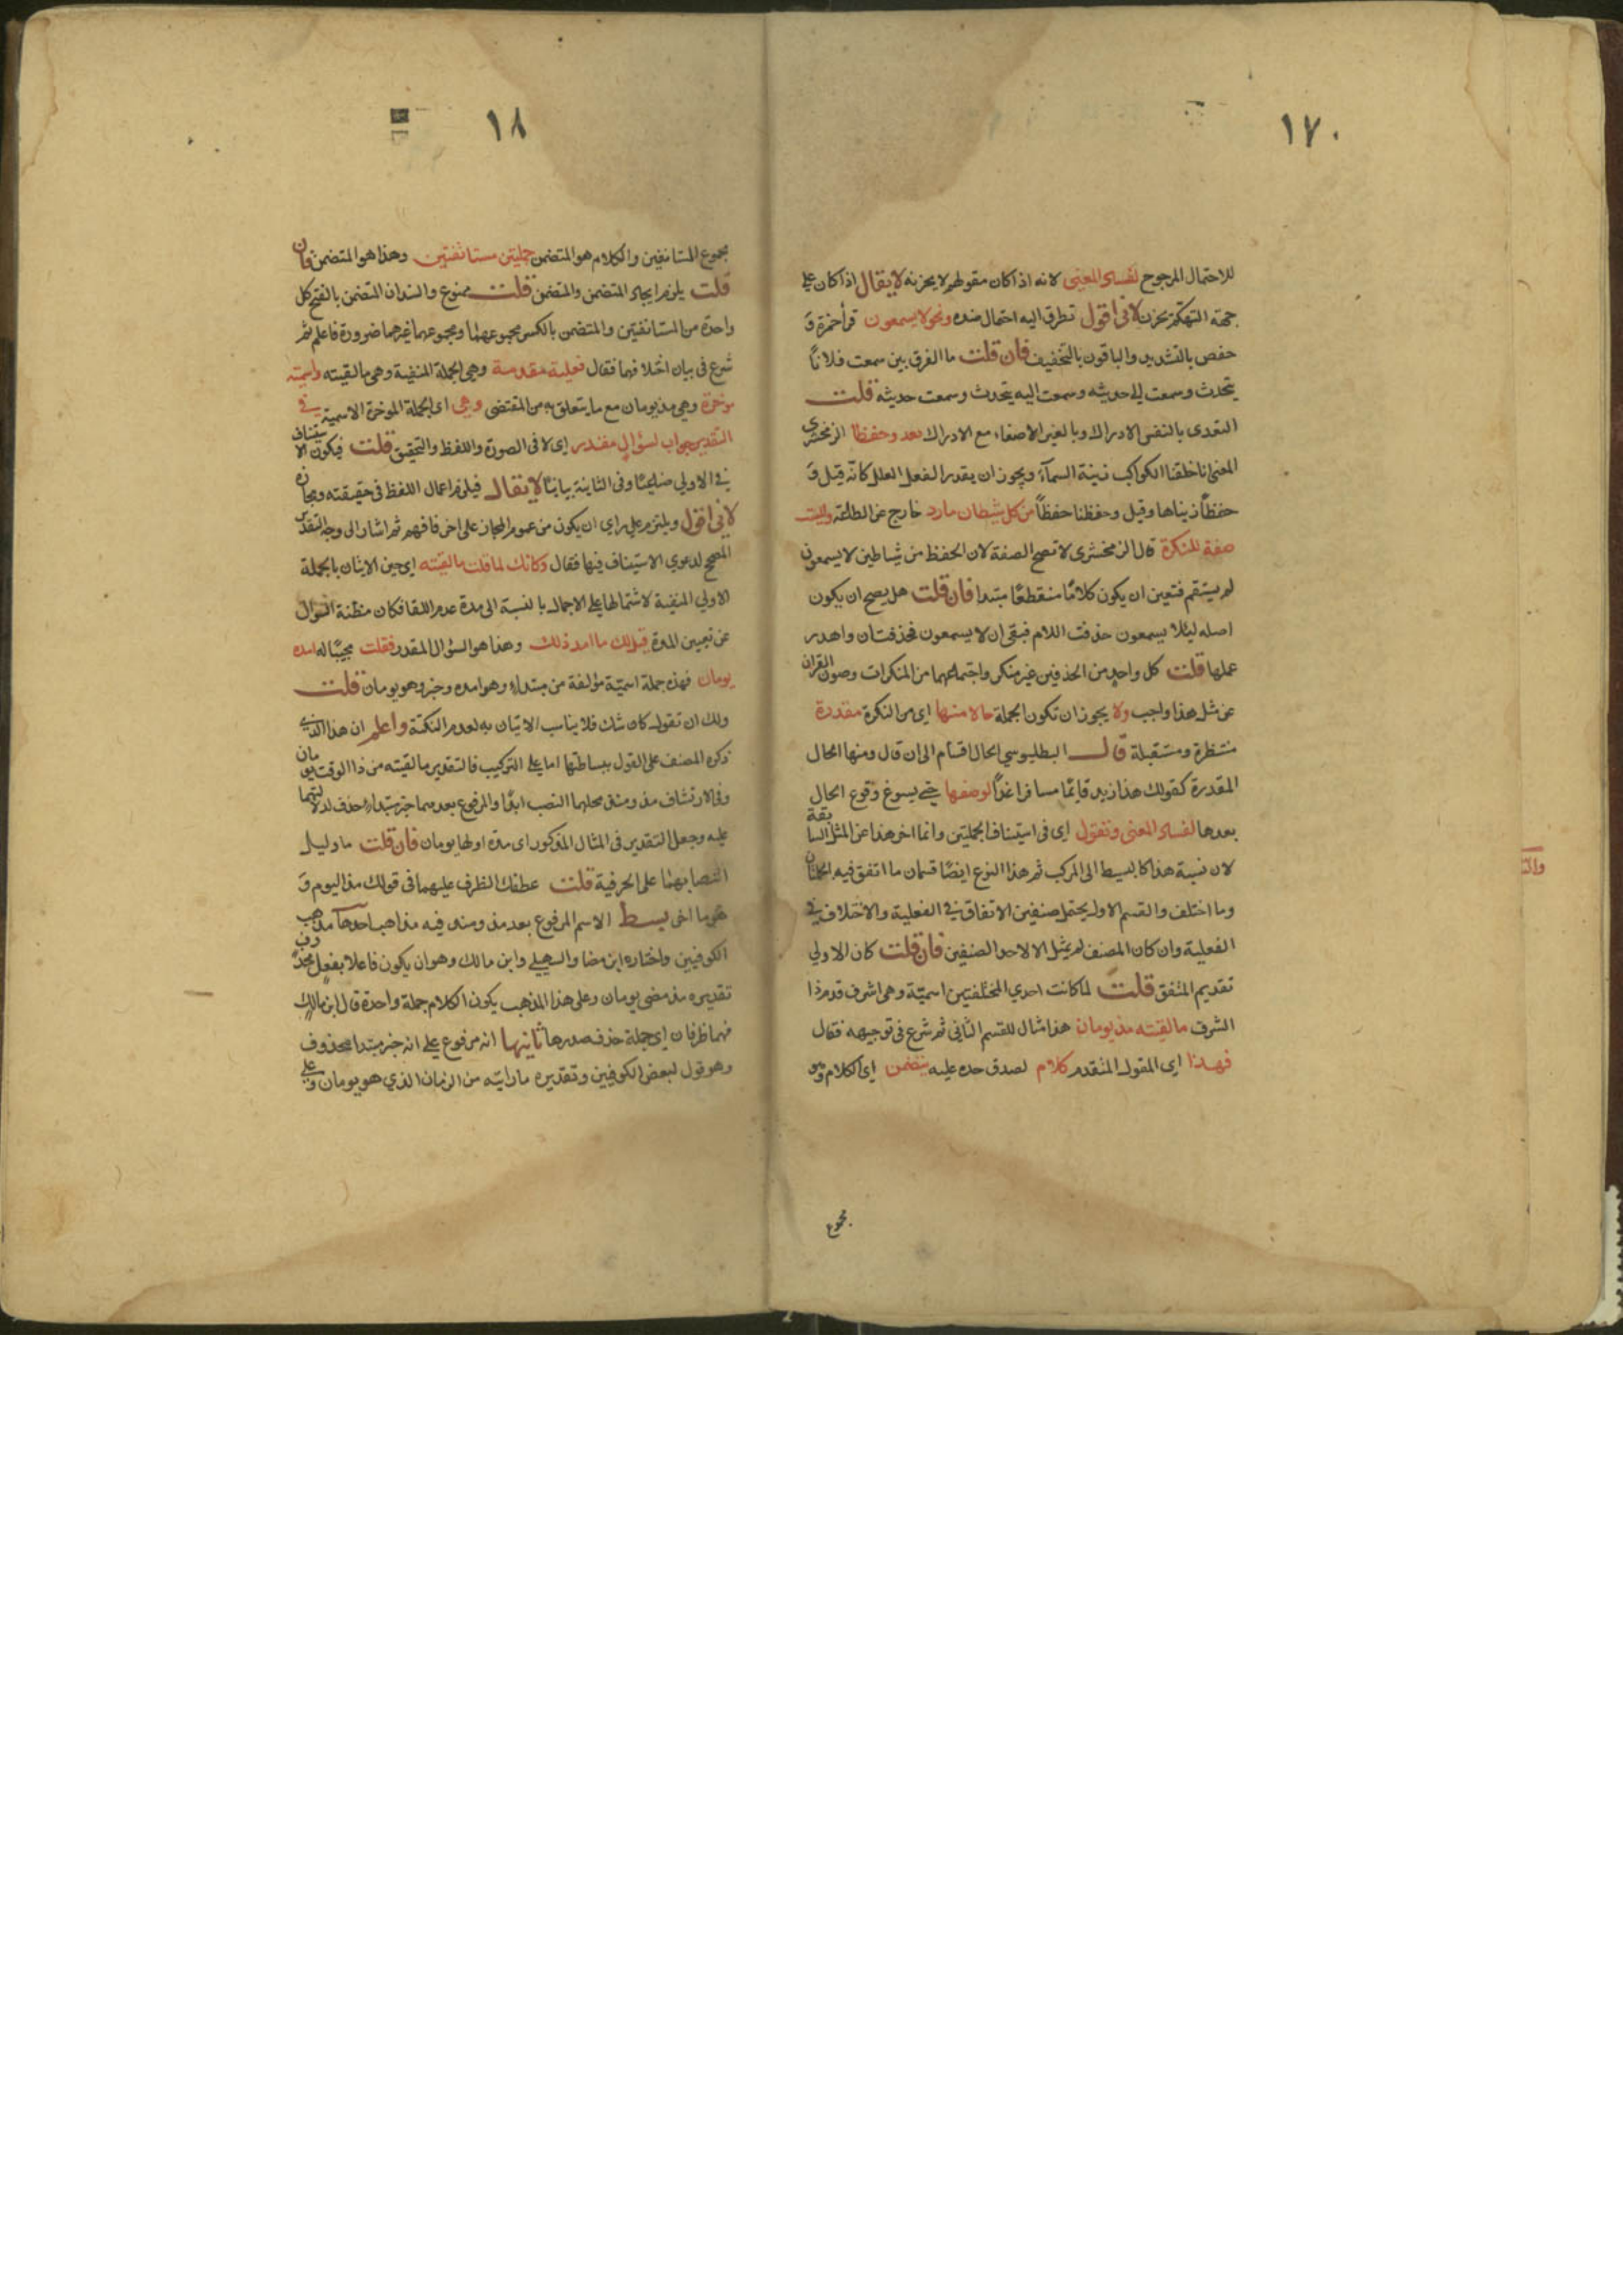 ١٧٠
للاحتمال المرجوح لفساد المعنى لانه اذا كان مقولهم لا يحزنه لا يقال اذا كان على
جهة التهكم يحزن لانى اقول تطرق اليه احتمال ضده ونحو لا يسمعون قرأ حمزة و
حفص بالتشديد والباقون بالتخفيف فان قلت ما الفرق بين سمعت فلانا
يتحدث وسمعت الى حديثه وسمعت اليه يتحدث وسمعت حديثه قلت
التعدى بالنفس الادراك وبالغير الاصغاء مع الادراك بعد وحفظا الزمخشرى
المعنى انا خلقنا الكواكب زينة السمآء ويجوز ان يقدر الفعل المعلل كانه قيل و
حفظاً زيناها وقيل وحفظنا حفظاً من كل شيطان مارد خارج عن الطاعة وليست
صفة للنكرة قال الزمخشرى لا تصح الصفة لان الحفظ من شياطين لا يسمعون
لم يستقم فتعين ان يكون كلامًا منقطعًا مبتدا فان قلت هل يصح ان يكون
اصله ليلا يسمعون حذفت اللام فبقى ان لا يسمعون فحذفت ان واهدر
عملها قلت كل واحد من الحذفين غير منكر واجتماعهما من المنكرات وصون القران
عن مثل هذا واجب ولا يجوز ان تكون الجملة حالا منها اى من النكرة مقدرة
منتظرة ومستقبلة قال البطليوسي الحال اقسام الى ان قال ومنها الحال
المقدرة كقولك هذا زيد قائمًا مسافرا غداً لوصفها حتى يسوغ وقوع الحال
بعدها لفساد المعنى وتقول اى فى استيناف الجملتين وانما اخر هذا عن المثل السابقة
لان نسبة هذا كالبسيط الى المركب ثم هذا النوع ايضًا قسمان ما اتفق فيه الجملتان
وما اختلف والقسم الاول يحتمل صنفين الاتفاق في الفعلية والاختلاف في
الفعلية وان كان المصنف لم يمثل الا لاحد الصنفين فان قلت كان الاولي
تقديم المتفق قلت لما كانت احدي المختلفتين اسمية وهى اشرف قدم ذا
الشرف ما لقيته مذ يومان هذا مثال للقسم الثانى ثم شرع فى توجيهه فقال
فهذا اى المقول المتقدم كلام لصدق حده عليه يتضمن اى الكلام وهو
مجموع
١٨
مجموع المستانفين والكلام هو المتضمن جملتين مستانفتين وهذا هو المتضمن فان
قلت يلزم ايجاد المتضمن والمتضمن قلت ممنوع والسند ان المتضمن بالفتح كل
واحدة من المستانفتين والمتضمن بالكسر مجموعهما ومجموعهما غيرهما ضرورة فاعلم ثم
شرع فى بيان اختلافهما فقال فعلية مقدمة وهى الجملة المنفية وهى ما لقيته واسمية
موخرة وهى مذ يومان مع ما يتعلق به من المقتضى وهي اى الجملة الموخرة الاسمية في
التقدير جواب لسؤال مقدر اى لا فى الصورة واللفظ والتحقيق قلت فيكون الاستيناف
في الاولي صناعيًا وفى الثانية بيانيًا لا يقال فيلزم اعمال اللفظ فى حقيقته ومجازه
لانى اقول ويلتزم على راى ان يكون من عموم المجاز على اخر فافهم ثم اشار الى وجه التقدير
المصحح لدعوي الاستيناف فيها فقال وكانك لما قلت ما لقيته اى حين الاتيان بالجملة
الاولي المنفية لاشتمالها على الاجمال بالنسبة الى مدة عدم اللقا فكان مظنة السوال
عن تعيين المدة قيل لك ما امد ذلك وهذا هو السؤال المقدر فقلت مجيبًا له امده
يومان فهذه جملة اسمية مؤلفة من مبتداء وهو امده وخبر وهو يومان قلت
ولك ان تقول كان شك فلا يناسب الاتيان به لعدم النكتة واعلم ان هذا الذي
ذكره المصنف على القول ببساطتها اما على التركيب فالتقدير ما لقيته من ذا الوقت يومان
وفى الارتشاف مذ ومنذ محلهما النصب ابدًا والمرفوع بعدهما خبر مبتداء حذف لدلالتهما
عليه وجعل التقدير فى المثال المذكور اى مدة اولها يومان فان قلت ما دليل
انتصابهما على الحرفية قلت عطفك الظرف عليهما فى قولك مذ اليوم و
بسط الاسم المرفوع بعد مذ ومنذ فيه مذاهب احدها مذهب
الكوفيين واختاره ابن مضا والسهيلي وابن مالك وهو ان يكون فاعلا بفعل محذوف
تقديره مذ مضى يومان وعلى هذا المذهب يكون الكلام جملة واحدة قال ابن مالك
فهما ظرفان اى جملة حذف صدرها ثانيها انه مرفوع على انه خبر مبتدا محذوف
وهو قول لبعض الكوفيين وتقديره ما رايته من الزمان الذي هو يومان وعلى